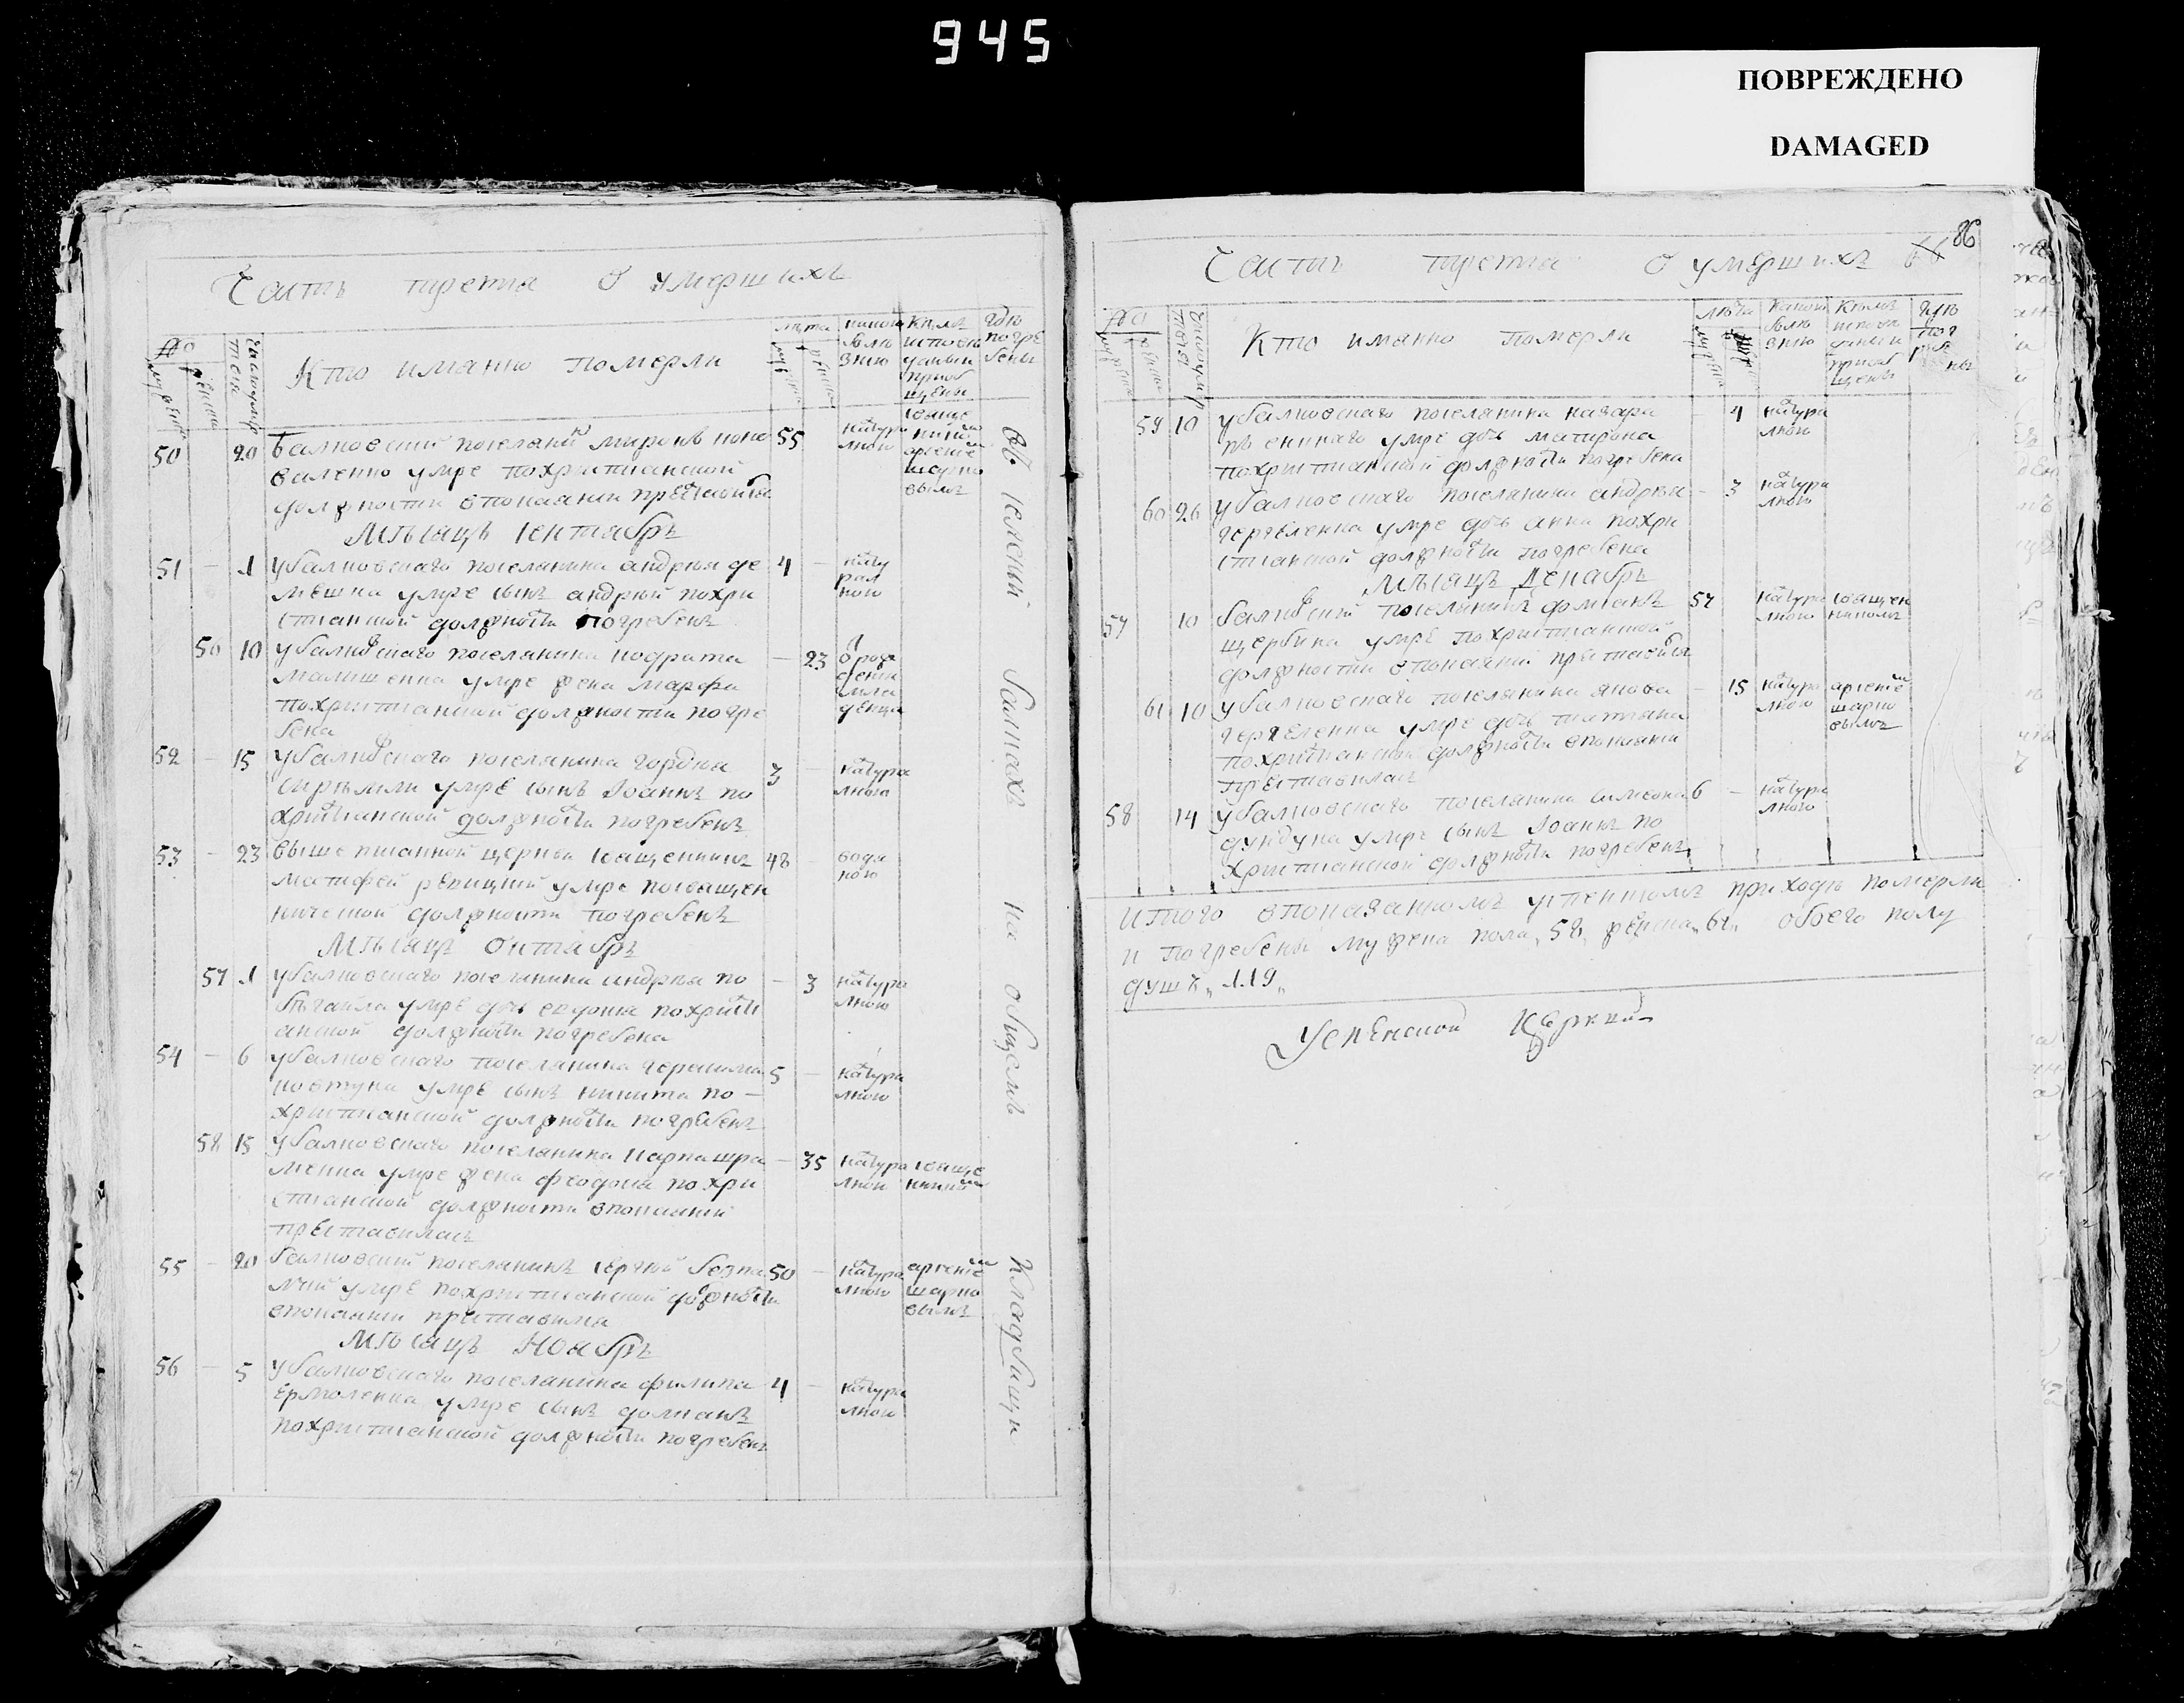 945
ПОВРЕЖДЕНО
DAMAGED
Часть третіа О умершихъ
№
мужеска
женска
Кто иманно померли
лѣта
какою
болѣ
знію
Кѣмъ
исповѣ
данъи
приоб
щены
гдѣ
погре
бены
50 20 Балковский поселяникъ миронъ коно
валенко умре похристианской
должности впокаянии преставися
55
натура
лною
священ
ником
арсение
шарко
вымъ
Мѣсяцъ Сентабръ
51 - 1 убалковскаго поселянина андрѣя де
мешка умре сынъ андрѣй похри
стианской должности погребенъ
4 -
нату
рал
ною
50 10 убалковскаго поселянина кодрата
малишенка умре жена марфа
похристианской должности погре
бена
- 23
О рож
дения
мла
денца
52 - 15 убалковскаго поселянина гордѣя
умре сынъ Iоаннъ по
христианской должности погребенъ
3 -
натура
лною
53 - 23 вышеписанной церкви священникъ
матфей умре посвящен
нической должности погребенъ
48 -
водя
ною
Мѣсяцъ Октабръ
57 1 убалковскаго поселянина андрѣя по
бѣгайла умре дочь евдокия похристи
анской должности погребена
- 3
натура
лною
54 - 6 убалковскаго поселянина герасима
ковтуна умре сынъ никита по-
христианской должности погребенъ
5 -
натура
лною
58 15 убалковскаго поселянина карпа шра
менка умре жена феодосия похри
стианской должности впокаянии
преставилась
- 35
натура
лною
свяще
нником
55 - 20 балковский поселянинъ сергѣй безпа
лий умре похристианской должности
впокаянии преставися
50 -
натура
лною
арсение
шарко
вымъ
Мѣсяцъ Ноабръ
56 - 5 убалковскаго поселянина филипа
ермоленка умре сынъ домианъ
похристианской должности погребенъ
4 -
натура
лною
Въ селении балкахъ на общемъ Кладбищи
86
Часть третиа О умершихъ
№
мужеска
женска
Кто иманно померли
лѣта
какою
болѣ
знию
Кѣмъ
исповѣ
даны и
приоб
щены
гдѣ
пог
ребе
ны
59 10 убалковскаго поселянина назара
умре дочь матрона
похристианской должности погребена
- 4
натура
лною
60 26 убалковскаго поселянина андрѣя
умре дочь анна похри
стианской должности погребена
- 3
натура
лною
Мѣсяцъ Декабръ
57 10 балковский поселянинъ домианъ
щербина умре похристианской
должности впокаянии преставися
57
натура
лною
священ
никомъ
61 10 убалковскаго поселянина якова
умре дочь татиана
похристианской должности впокаянии
преставилась
- 15
натура
лною
арсение
шарко
вымъ
58 14 убалковскаго поселянина симеона
дундука умре сынъ Iоаннъ по
христианской должности погребенъ
6 -
натура
лною
Итого впоказанномъ успенскомъ приходѣ померли
и погребены мужеска пола „58„ женска „61„ обоего полу
душъ „119„
Успенской Церкви